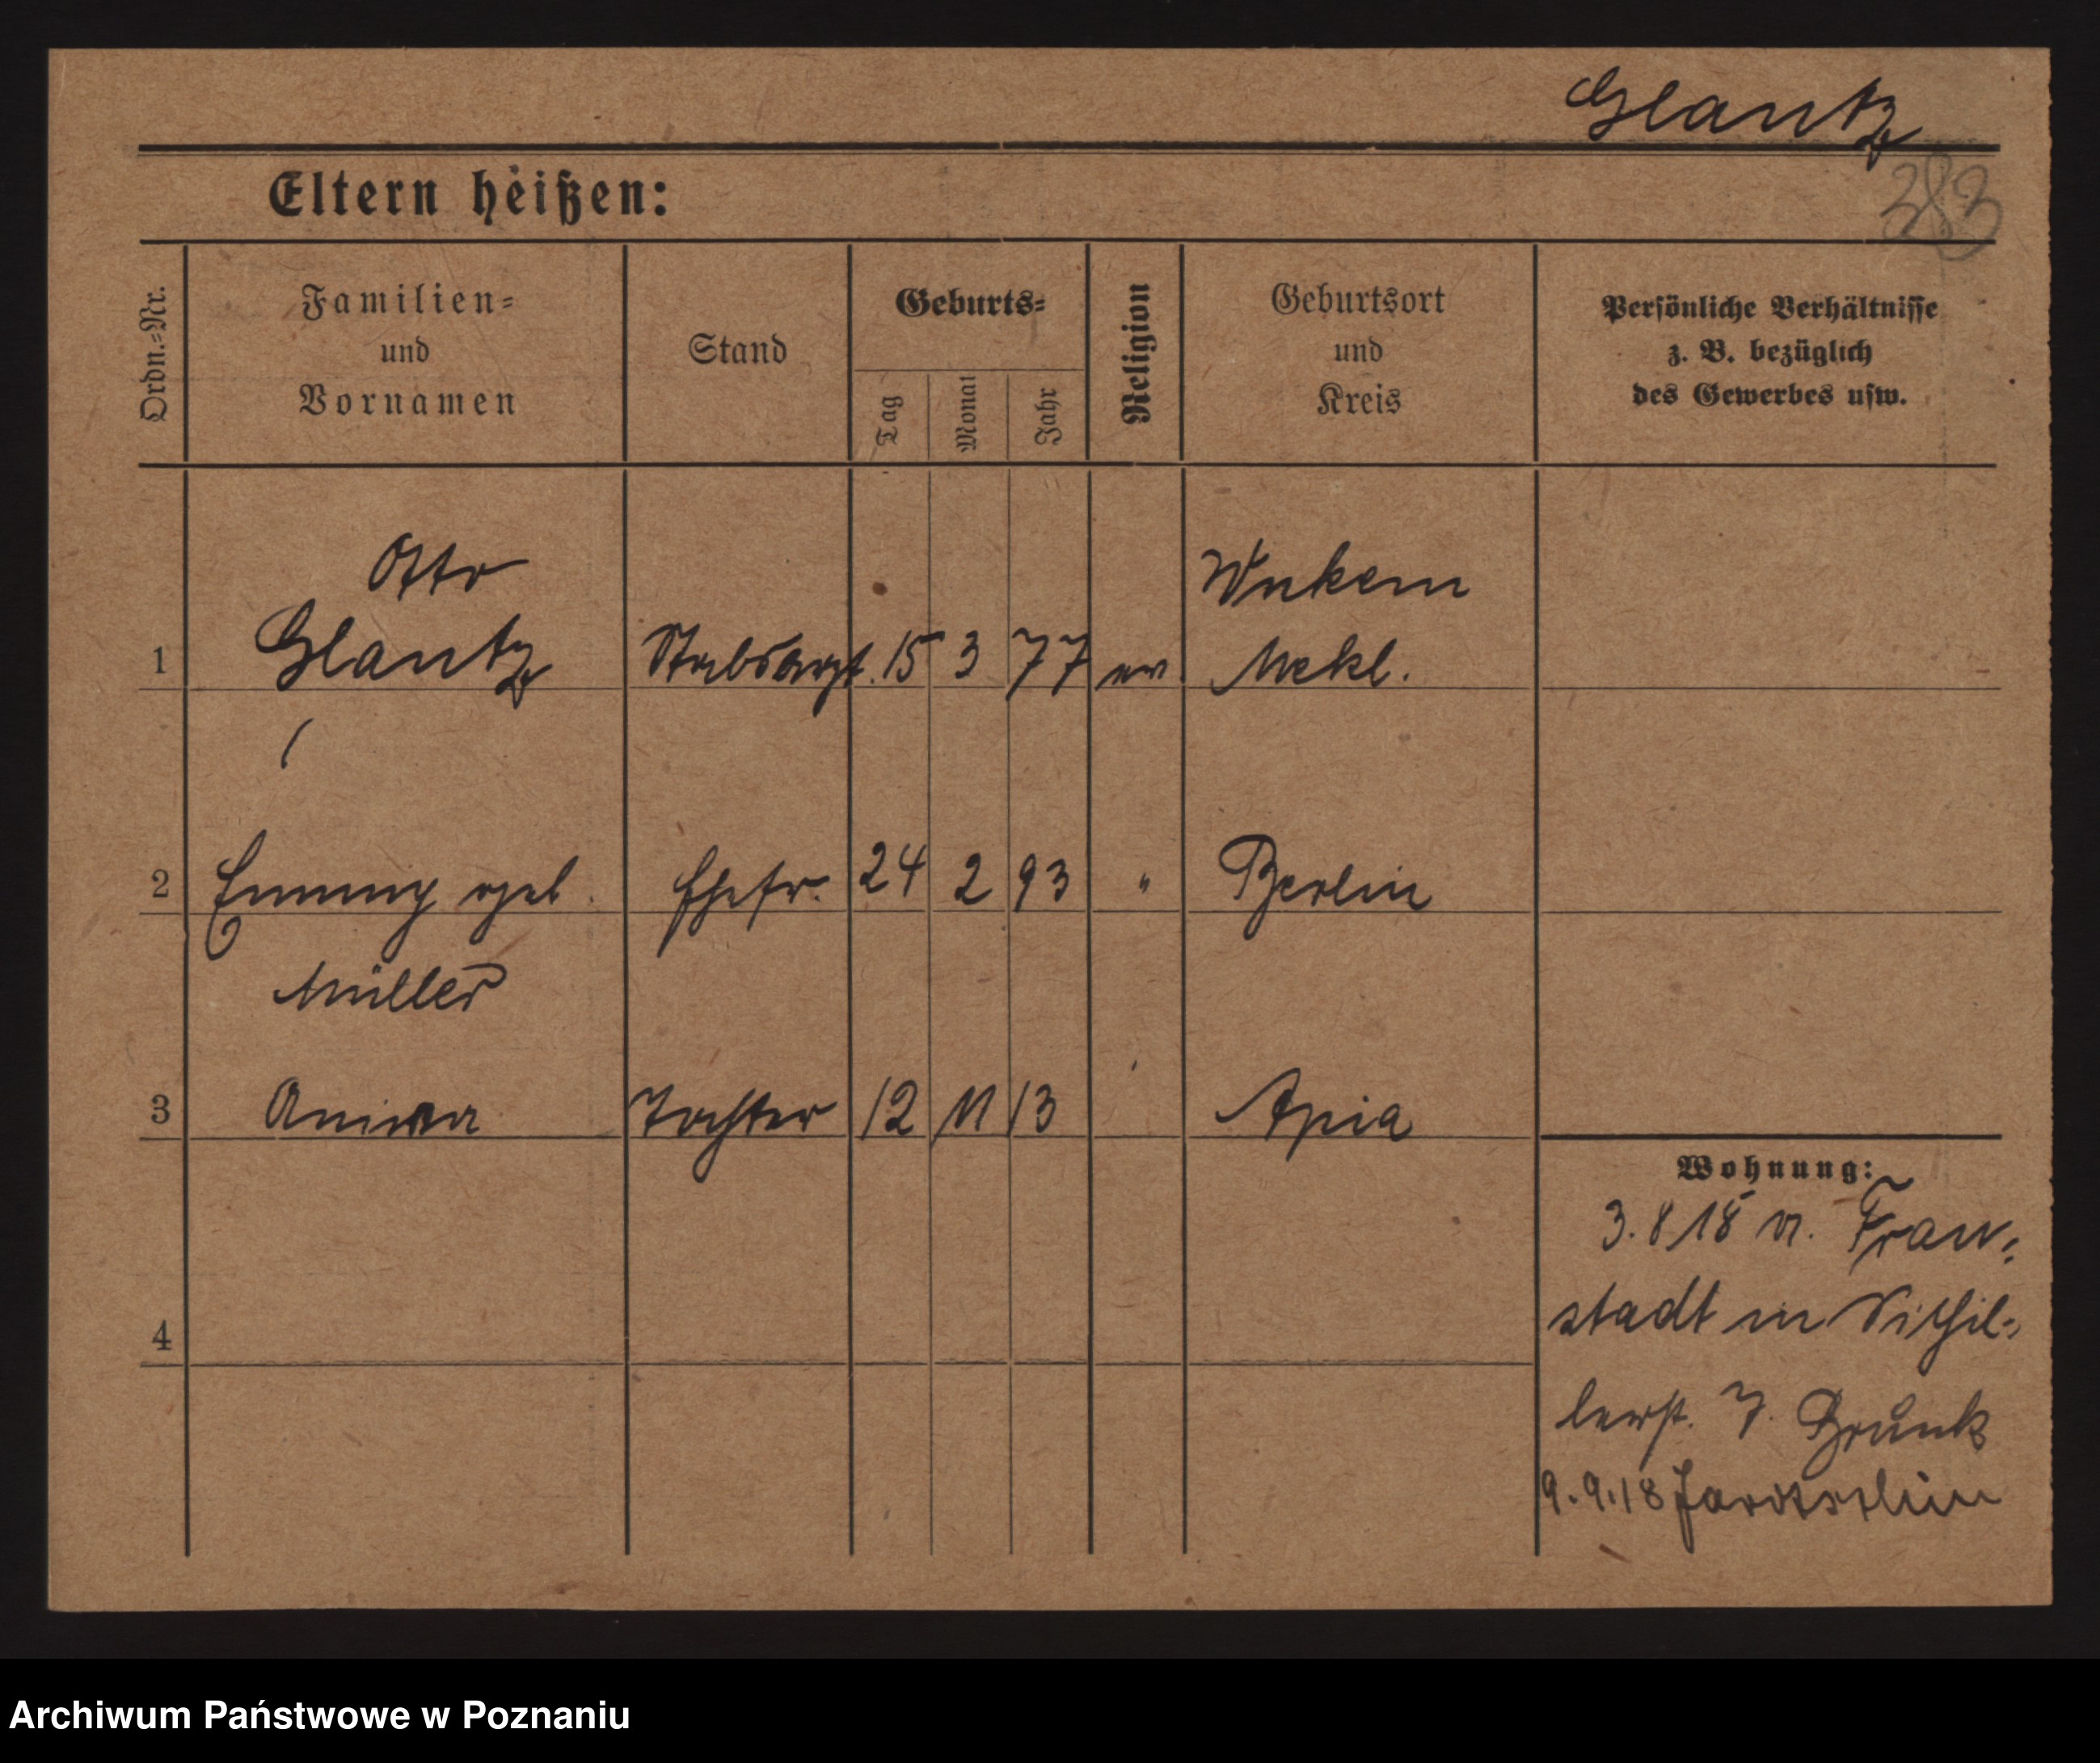 Glantz
Eltern heißen:
383
Ordn.-Nr.
Familien-
und
Vornamen
Stand
Geburts-
Tag
Monat
Jahr
Religion
Geburtsort
und
Kreis
Persönliche Verhältnisse
z. B. bezüglich
des Gewerbes usw.
1
Otto
Glantz
Stabsarzt.
15
3
77
ev.
Mekl.
2
Emmy geb.
Müller
Ehefr.
24
2
93
"
Berlin
3
Tochter
12
11
13
Apia
Wohnung:
3. 8 18 v. Frau-
stadt in
lerst. 7. Brunk
9.9.18
4
Archiwum Państwowe w Poznaniu